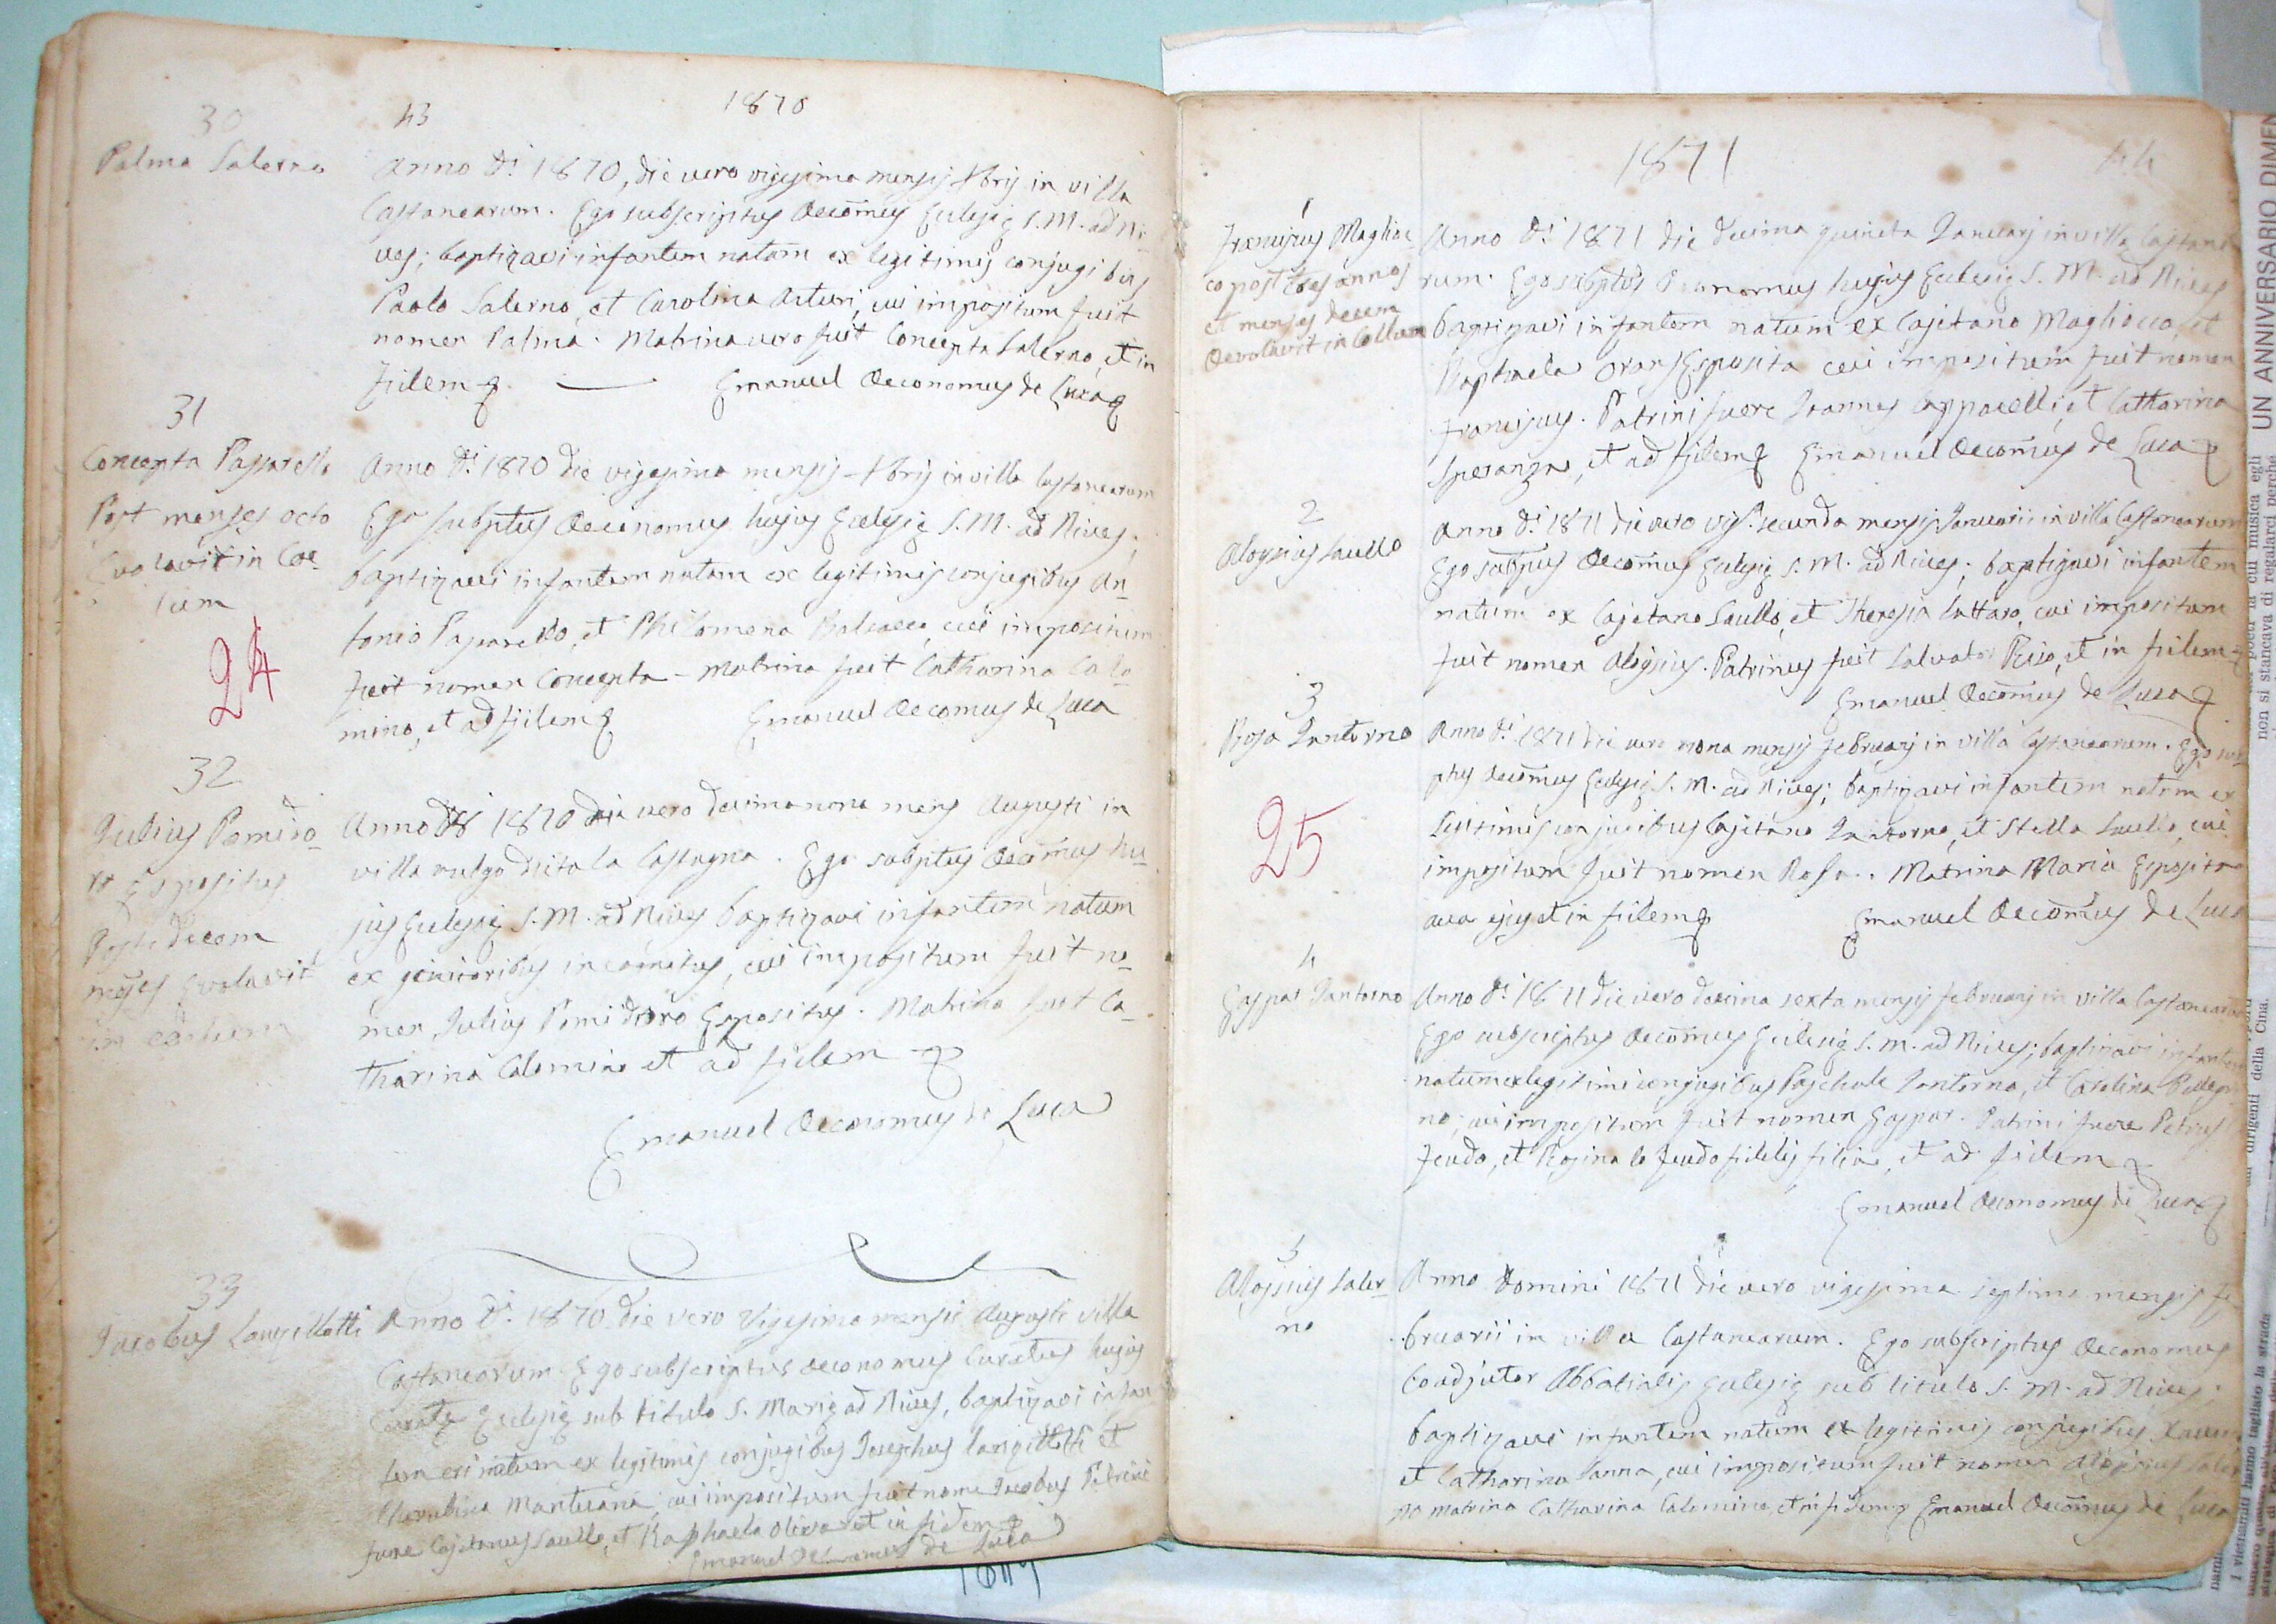 43
1870
30
Palma Salerno
Anno Di 1870, die vero vigesima mensis Xbris in villa
Castanearum. Ego subscriptus Oecomus Eclesię S. M. ad Ni-
ves; baptizavi infantem natam ex legitimis conjugibus
Paolo Salerno, et Carolina Arturi, cui impositum fuit
nomen Palma. Matrina vero fuit Concepta Salerno, et in
fidem
Emanuel Oeconomus de Luca
31
Concepta Passarelli
Post menses octo
Evolavit in Coe-
lum
24
Anno Di 1870 die vigesima mensis Xbris in villa Castanearum
Ego subptus Oeconomus hujus Eclesię S. M. ad Nives;
baptizavi infantem natam ex legitimis conjugibus An-
tonio Passarello, et Philomena, cui impositum
fuit nomen Concepta - Matrina fuit Catharina Colo-
mino, et ad fidem
Emanuel Oecomus de Luca
32
Julius Pomido-
ro Espositus
Post decem
menses Evolavit
in coelum
Anno Di 1870 die vero decimanona mens Augusti in
villa vulgo dicta la Castagna. Ego subptus Oecomus hu-
jus Eclesię S. M. ad Nives baptizavi infantem natum
ex genitoribus incognitus, cui impositum fuit no-
men Julius Pomidoro Espositus. Matrina fuit Ca-
tharina Colomino et ad fidem
Emanuel Oeconomus de Luca
33
Jacobus Langillotti
Anno Di 1870 die vero Vigesima mensis Augusti villa
Castanearum. Ego subscriptus oeconomus Curatus hujus
Curatę Eclesię sub titulo S. Marię ad Nives, baptizavi infan-
tem natum ex legitimis conjugibus Josephus langillotti et
Cherubina, cui impositum fuit nome Jacobus Patrini
fuere Cajetanus Saullo, et Raphaela Oliva et in fidem
Emanuel Oeconomus de Luca
1871
44
1
Franciscus Maglioc
co post tres annos
et menses decem
devolavit in Collum
Anno Di 1871 die decima quincta Januarj in villa Castanea
rum. Ego subptus Oeconomus hujus Eclesię S. M. ad Nives
baptizavi infantem natum ex Cajetano Magliocco, et
Raphaela Esposita cui impositum fuit nomen
Franciscus. Patrini fuere Joannes Capparelli, et Catharina
Speranza, et ad fidem Emanuel Oecomus de Luca
2
Aloysius Saullo
Anno Di 1871 die vero secunda mensis Januarii in villa Castanearum
Ego Oecomus Eclesię S. M. ad Nives; baptizavi infantem
natum ex Cajetano Saullo, et Theresia Cattaro, cui impositum
fuit nomen Aloysius. Patrinus fuit Salvator Riso, et in fidem
Emanuel Oecomus de Luca
3
Rosa Jantorno
25
Anno Di 1871 die vero nona mensis Februarj in villa Castanearum. Ego sub-
ptus Oecomus Eclesię S. M. ad Nives; baptizavi infantem natam ex
legitimis conjugibus Cajetano Jantorno, et Stella Saullo, cui
impositum fuit nomen Rosa. Matrina Maria Esposita
ava ejus et in fidem Emanuel Oecomus de Luca
4
Gaspar Jantorno
Anno Di 1871 die vero decima sexta mensis februarj in villa Castanearum
Ego subscriptus Oecomus Eclesię S. M. ad Nives; baptizavi infantem
natum ex legitimi conjugibus Paschale Jantorno, et Carolina
no; cui impositum fuit nomen Gaspar. Patrini fuere Petrus
Feudo, et Rosina lo Feudo fidelis filia, et ad fidem
Emanuel Oeconomus de Luca
5
Aloysius Saler-
no
Anno Domini 1871 die vero vigesima septima mensis Fe-
bruarii in villa Castanearum. Ego subscriptus Oeconomus
Coadjutor Abbatialis Eclesię sub titulo S. M. ad Nives;
baptizavi infantem natum ex legitimis conjugibus
et Catharina Sanna, cui impositum fuit nomen Aloysius Saler
no Matrina Catharina Colomino, et in fidem Emanuel Oecomus de Luca
UN ANNIVERSARIO DIMEN
non si stancava di regalarci perché